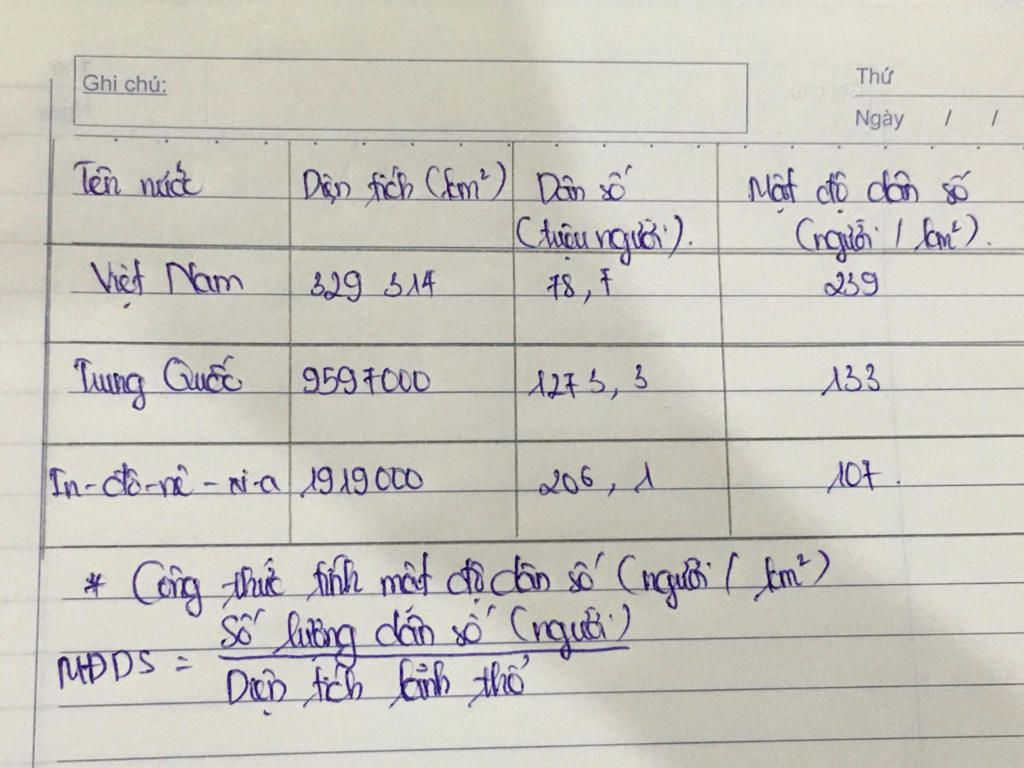 Ghi chú:
Thứ
Ngày / /
Tên nước Diện tích (km²) Dân số Mật độ dân số
(triệu người). (người / km²).
Việt Nam 329 314 78,7 239
Trung Quốc 9597000 1273,3 133
In-đô-nê-xi-a 1919000 206,1 107.
* Công thức tính mật độ dân số (người / km²)
Số lượng dân số (người)
MĐDS =
Diện tích lãnh thổ